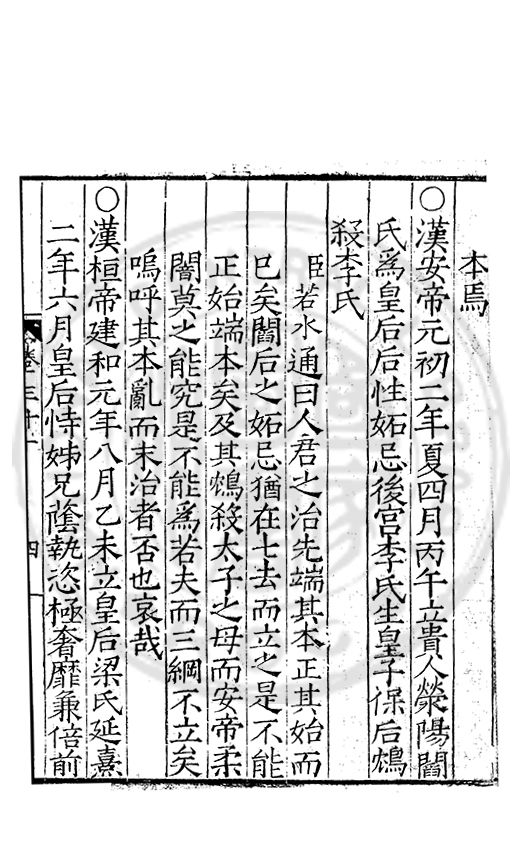 本焉
○漢安帝元初二年夏四月丙午立貴人滎陽閻
氏為皇后后性妬忌後宮李氏生皇子保后鴆
殺李氏
臣若水通曰人君之治先端其本正其始而
已矣閻后之妬忌猶在七去而立之是不能
正始端本矣及其鴆殺太子之母而安帝柔
闇莫之能究是不能為若夫而三綱不立矣
嗚呼其本亂而末治者否也哀哉
○漢桓帝建和元年八月乙未立皇后梁氏延熹
二年六月皇后恃姊兄蔭執恣極奢靡兼倍前
卷三十一
四